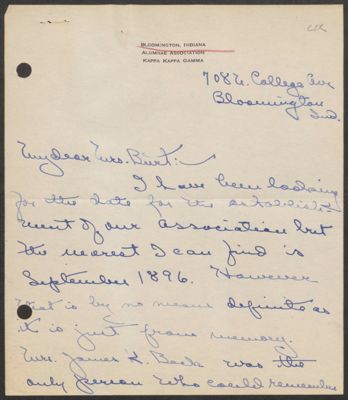 BLOOMINGTON, INDIANA
ALUMNAE ASSOCIATION
KAPPA KAPPA GAMMA
708 E. College Ave
Bloomington
Ind.
My dear Mrs. Burt:
I have been looking
for the date for the establish-
ment of our association but
the nearest I can find is
September 1896. However
that is by no means definite as
it is just from memory.
Mrs. James K. Beck was the
only person who could remember